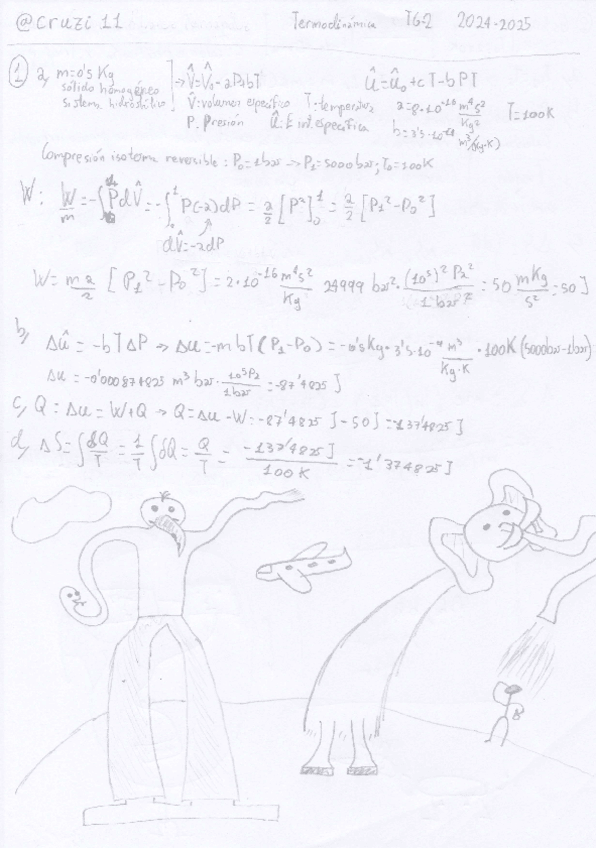 @cruzi11 Termodinámica TG2 2024-2025
① a, m=0's Kg → V̂=V̂₀-aP+bT û=û₀+cT-bPT
sólido homogéneo V̂: volumen específico T: temperatura a=8·10⁻¹⁶ m⁴s²/Kg² T=100K
sistema hidrostático P: Presión û: E int. específica b=3's·10⁻⁹ m³/(Kg·K)
Compresión isoterma reversible: P₀=1bar → P₁=5000bar; T₀=100K
W: W/m = -∫PdV̂ = -∫₀¹P(-a)dP = a/2 [P²]₀¹ = a/2 [P₁²-P₀²]
dV̂=-adP
W= ma/2 [P₁²-P₀²] = 2·10⁻¹⁶ m⁴s²/Kg 24999 bar²·(10⁵)²Pa²/1bar² = 50 mKg/s² = 50J
b, Δû = -bTΔP → Δu=-mbT(P₁-P₀) = -0's Kg·3's·10⁻⁹ m³/Kg·K · 100K (5000bar-1bar)
Δu = -0'000874825 m³bar · 10⁵Pa/1bar = -87'4825 J
c, Q: Δu = W+Q → Q=Δu-W=-87'4825 J-50J=-137'4825J
d, ΔS=∫dQ/T = 1/T ∫dQ = Q/T = -137'4825J/100K = -1'374825J